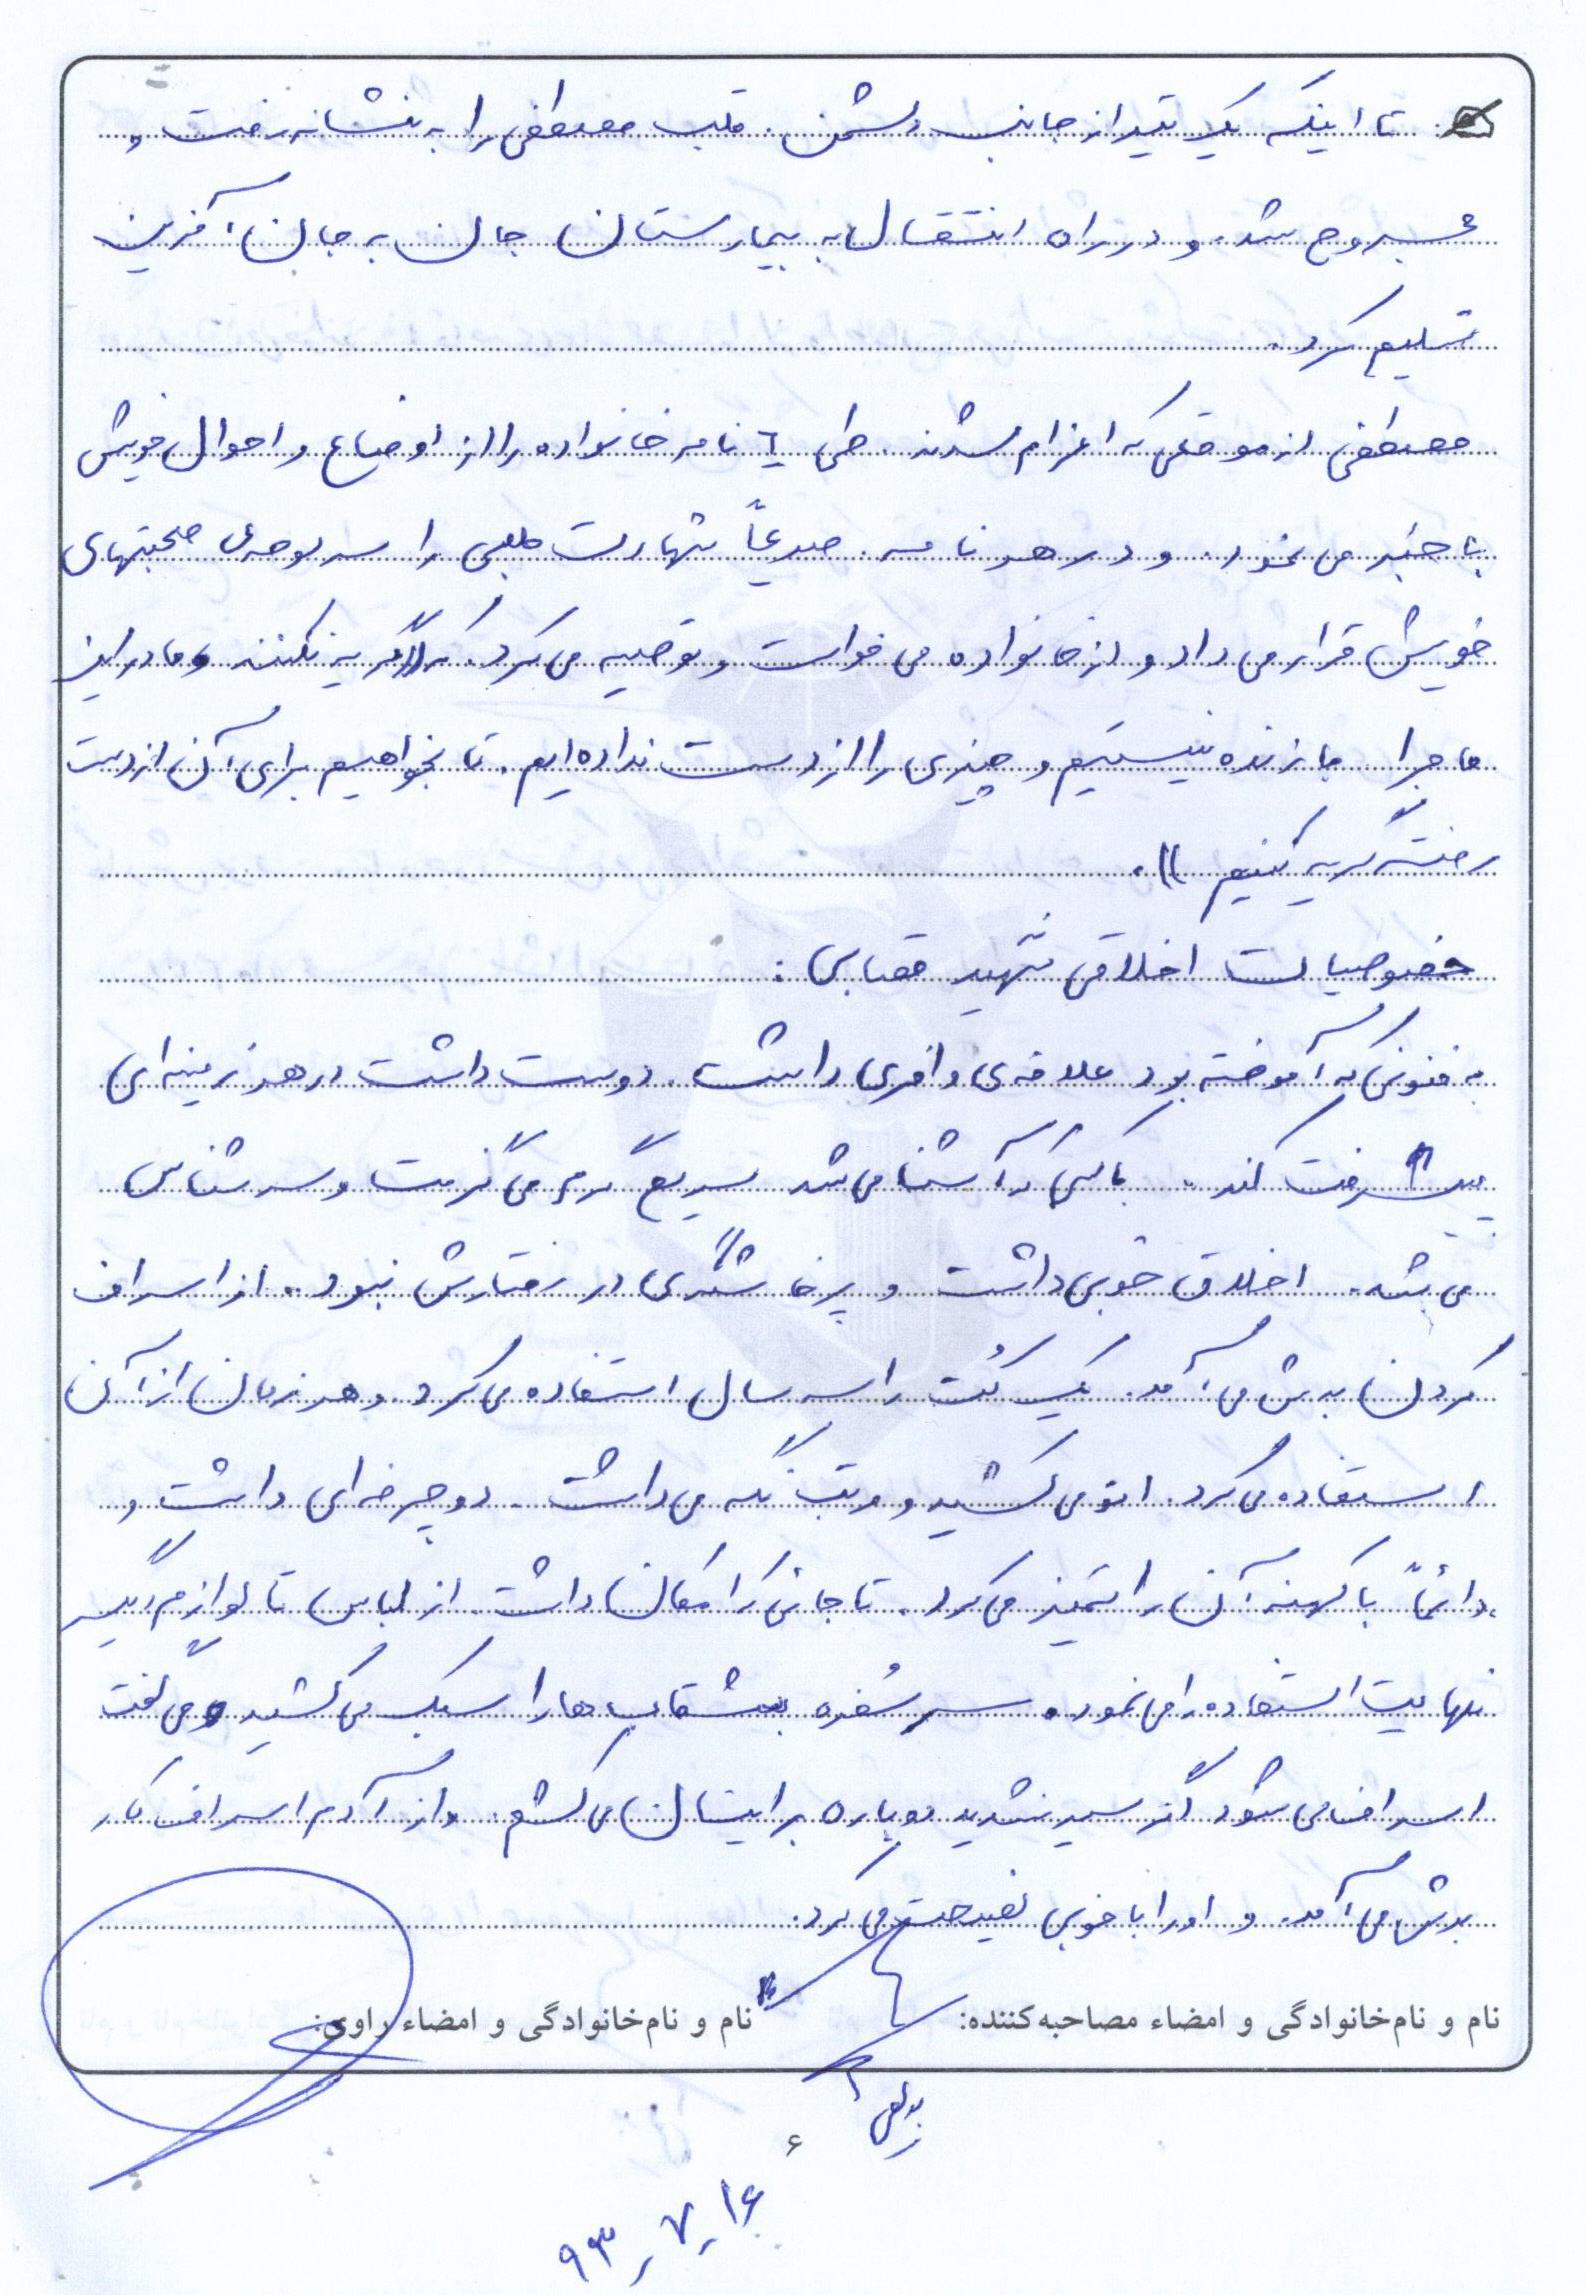 تا اینکه یک تیر از جانب دشمن. قلب مصطفی را به نشانه رفت و
مجروح شد. و در راه انتقال به بیمارستان جان به جان آفرین
تسلیم کرد.
مصطفی از موقعی که اعزام شدند. طی نامه خانواده را از اوضاع و احوال خویش
با خبر می نمود. و در هر نامه. صریحاً شهادت طلبی را سرلوحه‌ی صحبتهای
خویش قرار می داد و از خانواده می خواست و توصیه می کرد. که «گریه نکنند و ما در این
ماجرا بازنده نیستیم و چیزی را از دست نداده ایم. تا بخواهیم برای آن از دست
رفته گریه کنیم».
خصوصیات اخلاقی شهید قصابی :
به فنونی که آموخته بود علاقه‌ی وافری داشت. دوست داشت در هر زمینه ای
پیشرفت کند. با کسی که آشنا می شد سریع گرم می گرفت و سرشناس
می شد. اخلاق خوبی داشت و پرخاشگری در رفتارش نبود. از اسراف
کردن بدش می آمد. یک کُت را سه سال استفاده می کرد. و هر زمان از آن
استفاده می کرد. اتو می کشید و مرتب نگه می داشت. دوچرخه ای داشت و
دائماً با کهنه آن را تمیز می کرد. تا جائی که امکان داشت. از لباس تا لوازم دیگر
نهایت استفاده را می نمود. سر سُفره بشقاب ها را سبک می کشید و می گفت
اسراف می شود اگر سیر نشدید دوباره برایتان می کشم. و از آدم اسراف کار
بدش می آمد. و او را با خوبی نصیحت می کرد.
نام و نام‌خانوادگی و امضاء مصاحبه‌کننده: نام و نام‌خانوادگی و امضاء راوی:
۶
۹۳٫۷٫۱۶